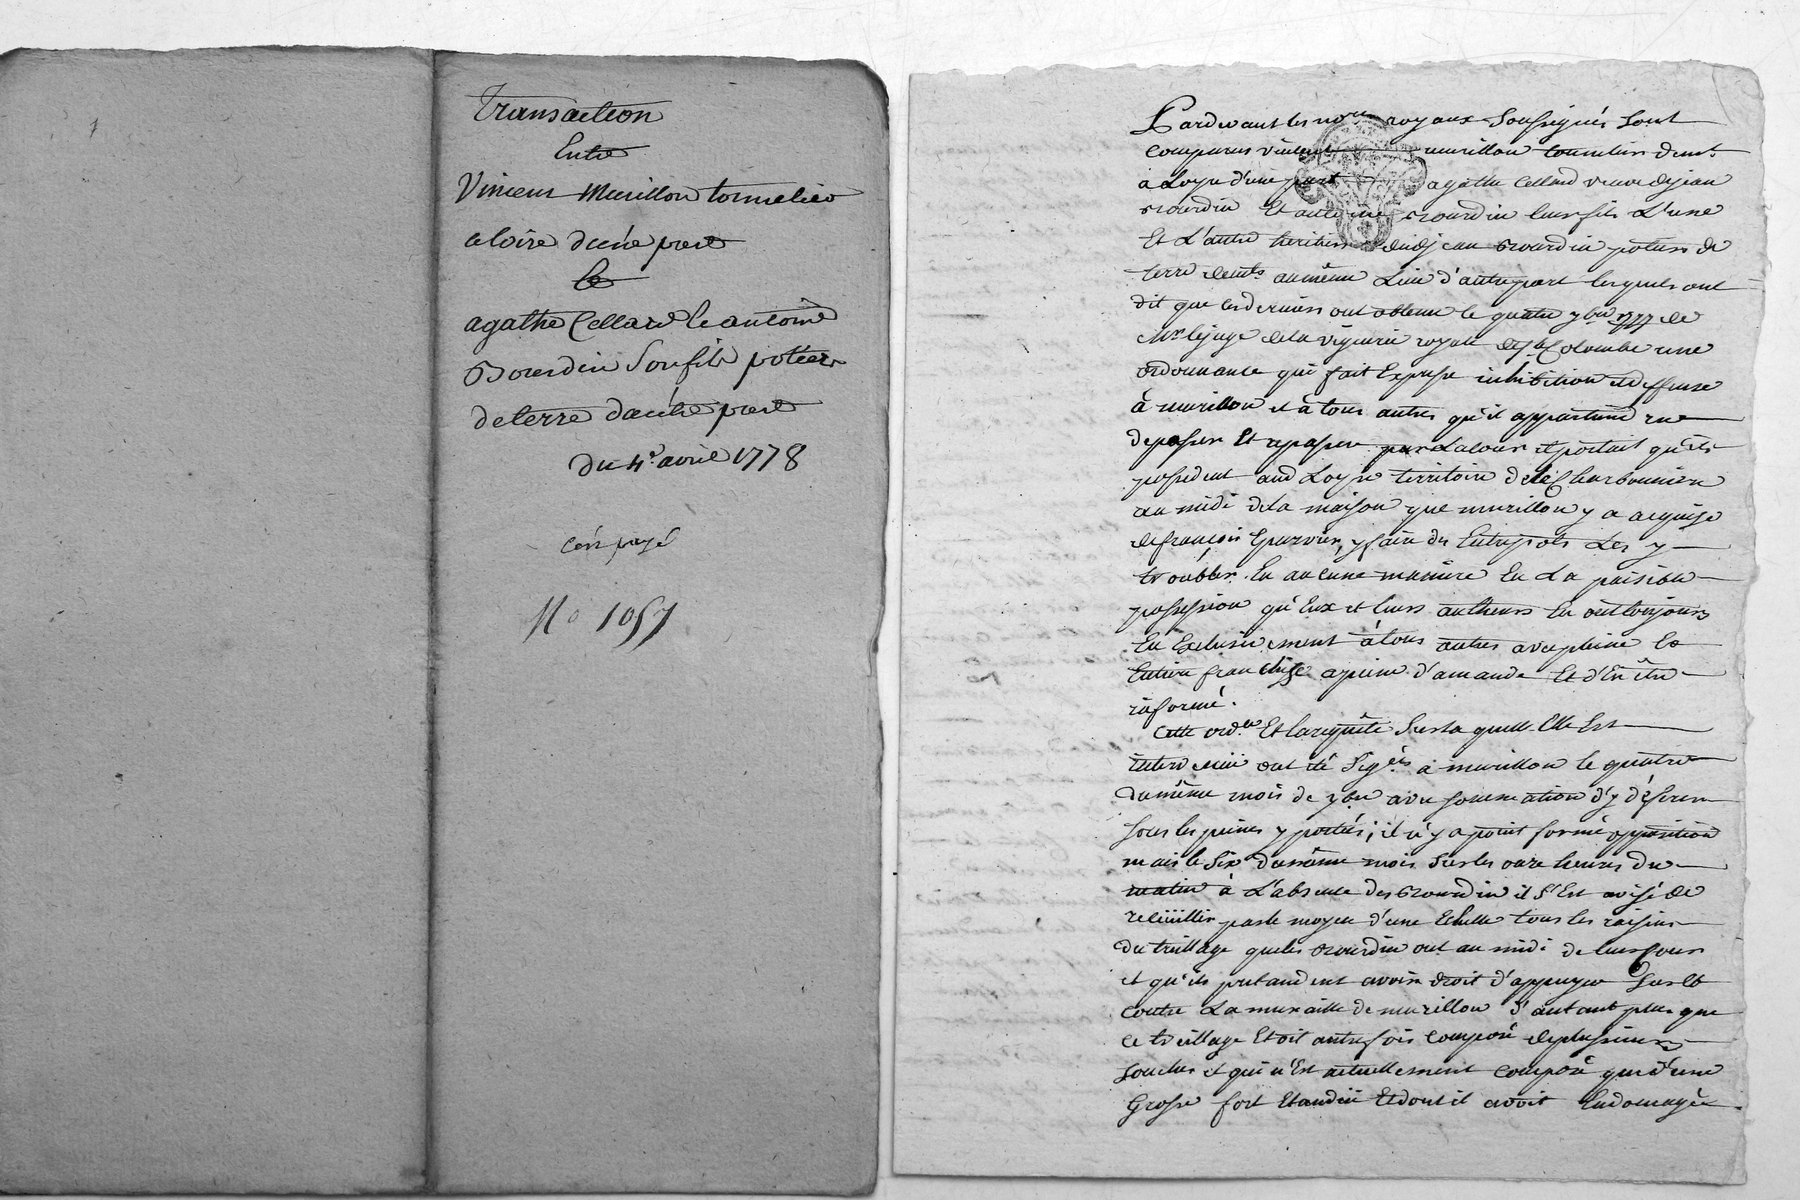 Transaction
Entre
Vincent Murillon tonnelier
a loire d'une part
Et
agathe Cellard et antoine
Bourdin son fils potiers
de terre d'autre part
du 4e avril 1778
Cen payé
No 1057
Pardevant les nores royaux soussignés sont
comparus vincent murillon tonnelier demt
a Loyre d'une part agathe Cellard veuve de jean
Bourdin Et antoine Bourdin leur fils L'une
Et L'autre heritiers dudj jean Bourdin potiers de
terre demts au même Lieu d'autre part lesquels ont
dit que les derniers ont obtenu le quatre 7bre 1777 de
Mr le juge de la viguerie royale de ste Colombe une
ordonnance qui fait Expresse inhibition et deffense
à murillon et à tous autres qu'il appartiend ra
de passer Et repasser par La cour et portail qu'ils
possedent aud Loyre territoire de la Charbonniere
au midi de La maison que murillon y a acquise
de françois Epurvier, y faire des Entrepots Les y
troubler En aucune maniere En La paisible
possession qu'Eux et leurs autheurs En ont toujours
Eu Exclusivement à tous autres avec pleine Et
Entiere franchise a peine d'amande Et d'En être
informé.
Cette ordce Et la requête sur la quelle Elle Est
intervenüe ont été sigées à murillon le quatre
du même mois de 7bre avec sommation d'y déferer
sous les peines y portées; il n'y a point formé opposition
mais le six du même mois sur les onze heures du
matin à L'absence des Bourdin il s'Est avisé de
reciüillir par le moyen d'une Echelle tous les raisins
du treillage que les Bourdin ont au midi de leur four
et qu'ils pretandent avoir droit d'appuyer sur Et
contre La muraille de murillon d'autant plus que
ce treillage Etoit autrefois composé de plusieurs
souches et qui n'Est actuellement composé que d'une
Grosse fort Etandüe Et dont il avoit Endomagée